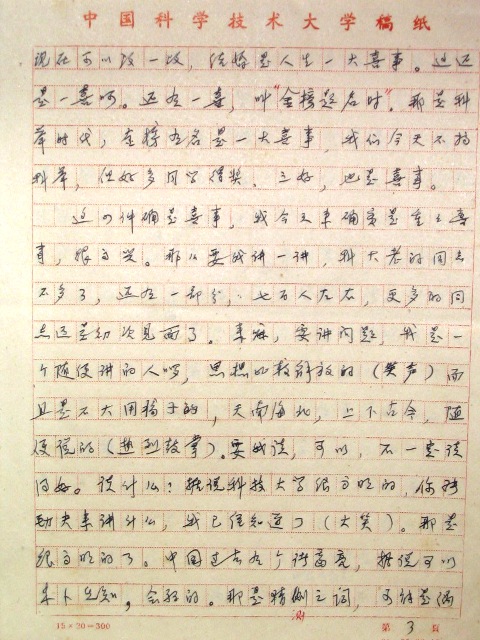 中国科学技术大学稿纸
现在可以改一改，结婚是人生一大喜事。这还
是一喜啊。还有一喜，叫"金榜题名时"。那是科
举时代，金榜有名是一大喜事，我们今天不搞
科举，但好多同学得奖、三好，也是喜事。
这四件确是喜事，我今天来确实是有喜
事，很高兴。那么要我讲一讲，科大老的同志
不多了，还有一部分，七百人左右，更多的同
志还是初次见面了。来嘛，要讲问题，我是一
个随便讲的人啰，思想比较解放的（笑声）而
且是不大用稿子的，天南海北，上下古今，随
便说的（热烈鼓掌）。要我谈，可以，不一定谈
得好。谈什么？据说科技大学很高明的，你
来讲什么，我已经知道了（大笑）。那是
很高明的了。中国过去有个诸葛亮，据说可以
未卜先知，会算的。那是猜测之词，可能是
测
15×20=300
第 3 页